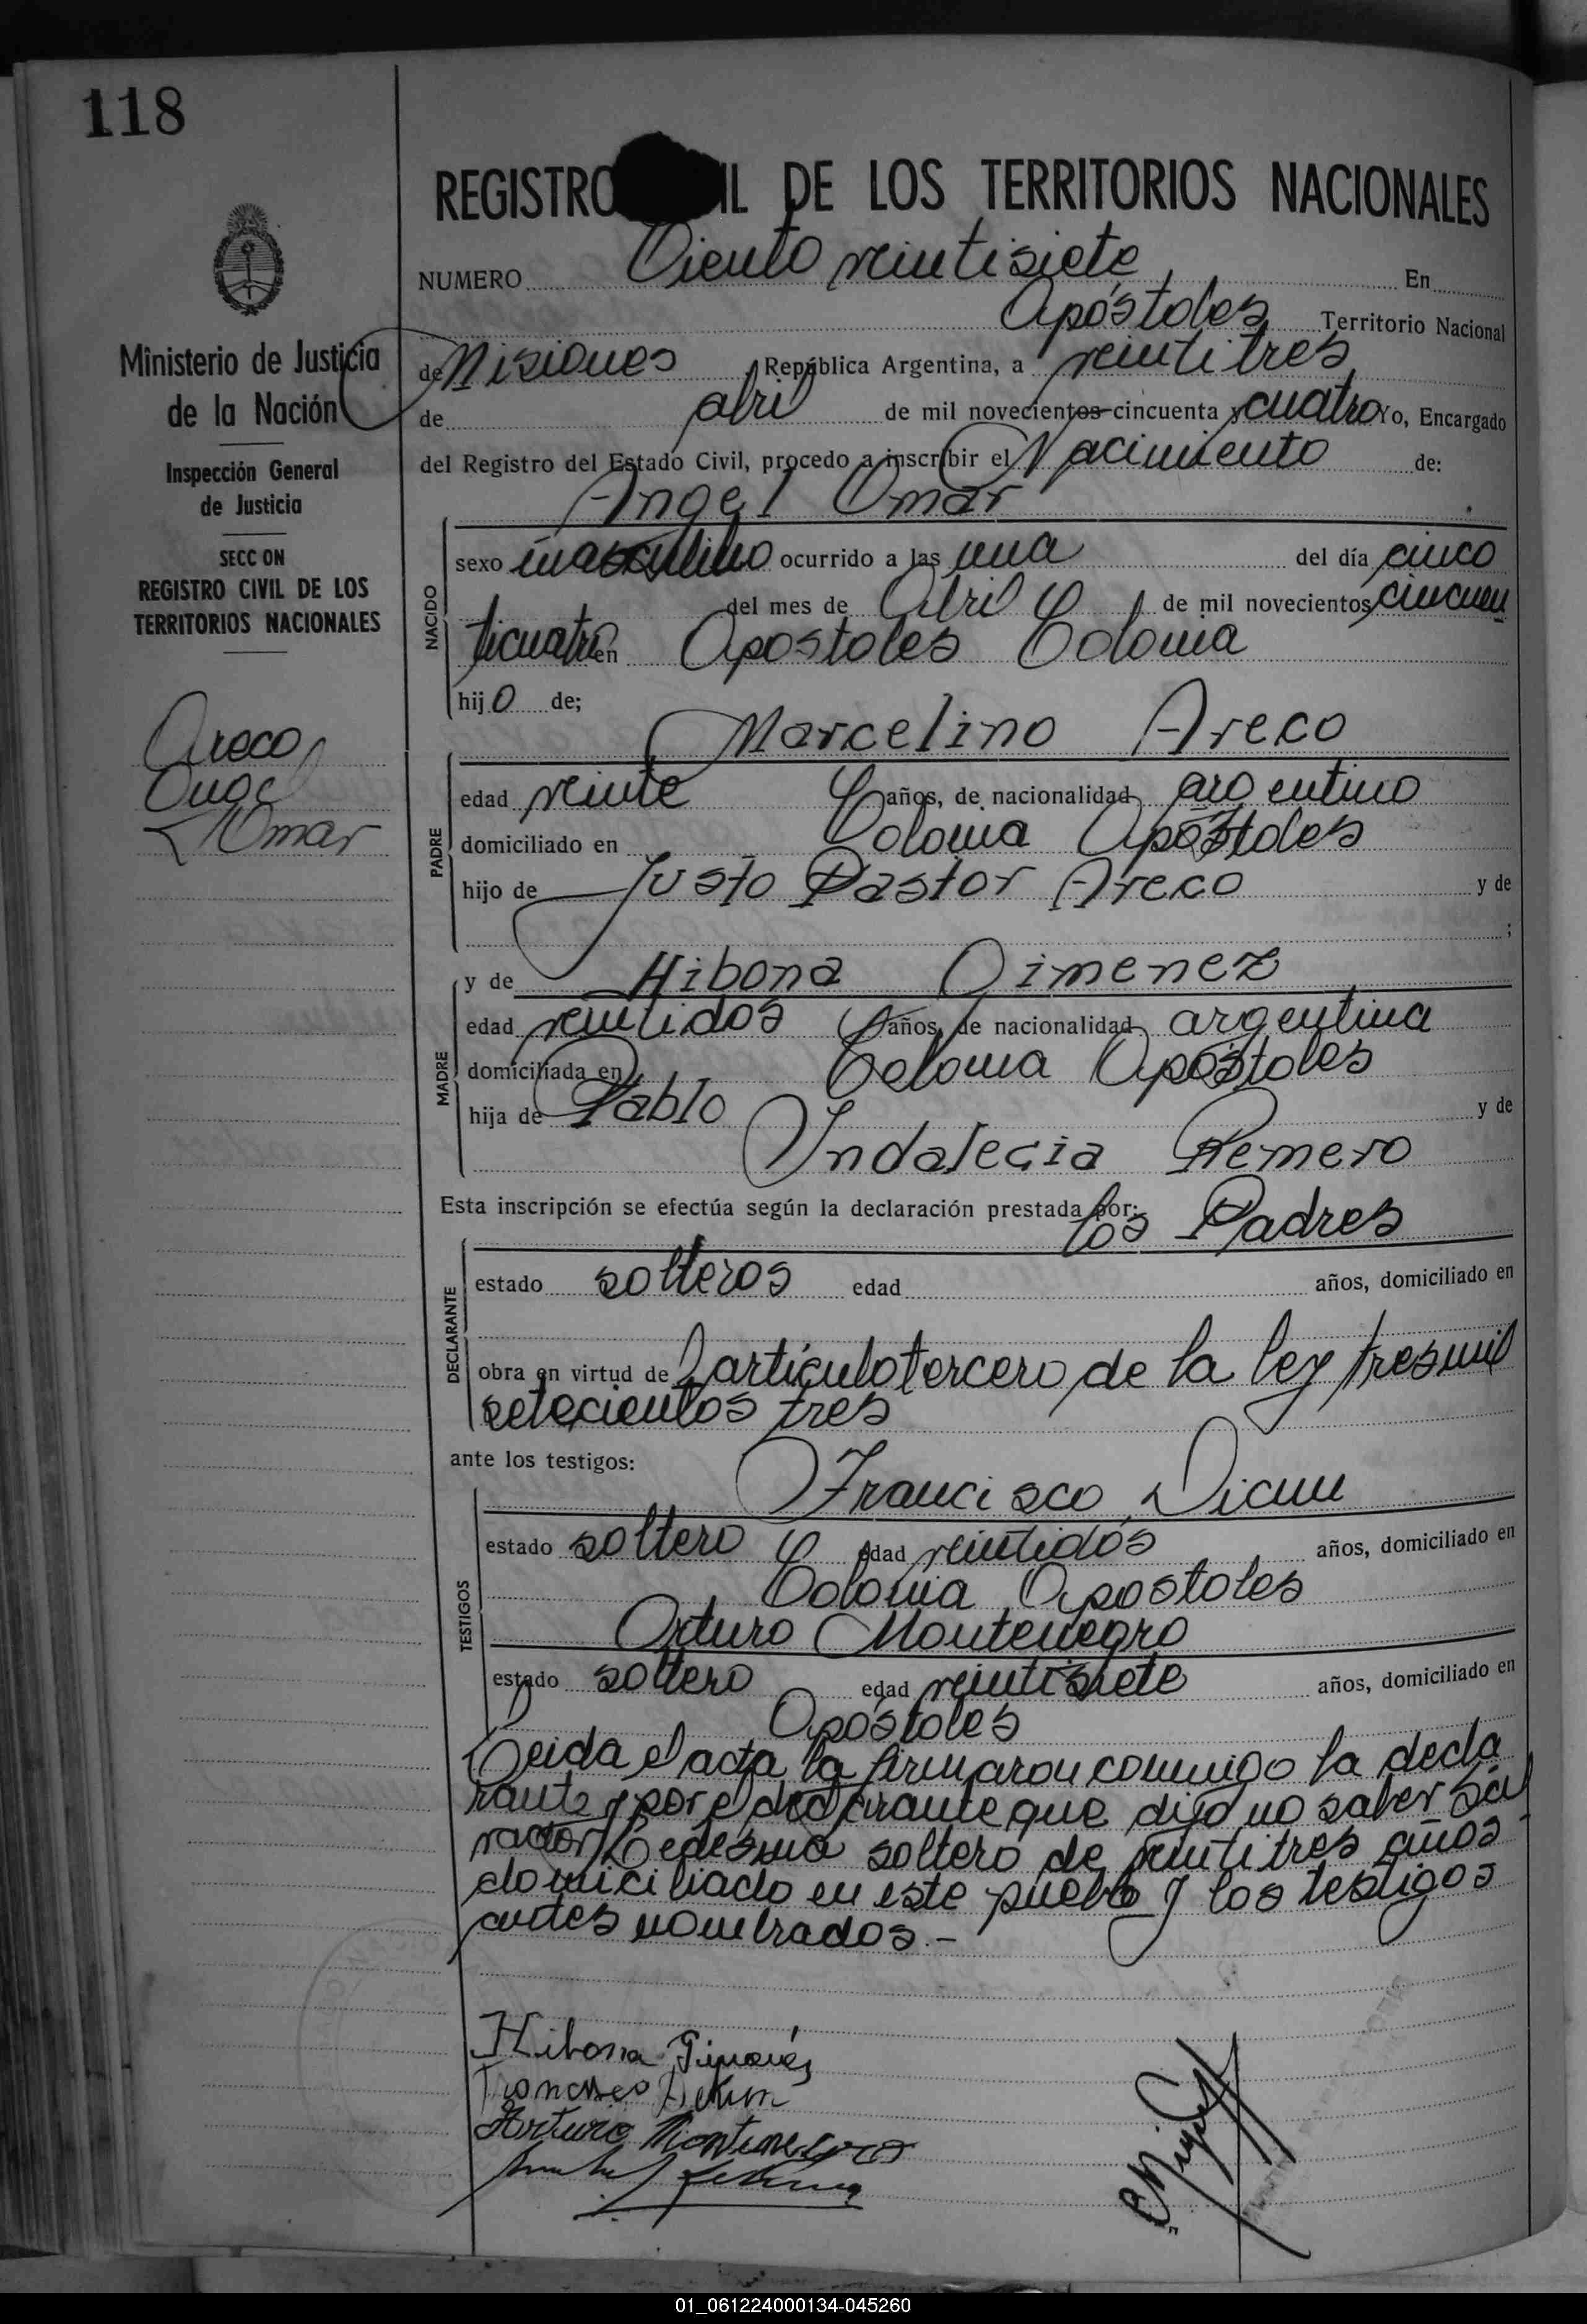 118
REGISTRO IL DE LOS TERRITORIOS NACIONALES
NUMERO Ciento veintisiete, En
Apóstoles Territorio Nacional
de Misiones, República Argentina, a veintitres
de abril de mil novecientos cincuenta y cuatro Yo, Encargado
del Registro del Estado Civil, procedo a inscribir el Nacimiento de:
Angel Omar
Ministerio de Justicia
de la Nación
Inspección General
de Justicia
SECC ON
REGISTRO CIVIL DE LOS
TERRITORIOS NACIONALES
Areco
Angel
Omar
NACIDO
sexo masculino ocurrido a las una del día cinco
del mes de Abril de mil novecientos cincuen
ticuatro en Apostoles Colonia
hijo de;
Marcelino Areco
PADRE
edad veinte años, de nacionalidad argentino
domiciliado en Colonia Apóstoles
hijo de Justo Pastor Areco y de
;
y de Hibona Gimenez
MADRE
edad veintidos años, de nacionalidad argentina
domiciliada en Colonia Apóstoles
hija de Pablo y de
Indalecia Romero
Esta inscripción se efectúa según la declaración prestada por: los Padres
DECLARANTE
estado solteros edad años, domiciliado en
obra en virtud del artículo tercero de la ley tresmil
setecientos tres
ante los testigos:
Francisco
TESTIGOS
estado soltero edad veintidós años, domiciliado en
Colonia Apostoles
Arturo Montenegro
estado soltero edad veintisiete años, domiciliado en
Apóstoles
Leida el acta la firmaron conmigo la decla
rante y por el declarante que dijo no saber Sal
vador Ledesma soltero de veintitres años
domiciliado en este pueblo y los testigos
antes nombrados.-
Hibona Gimenéz
Francisco
Arturo Montenegro
01_061224000134-045260